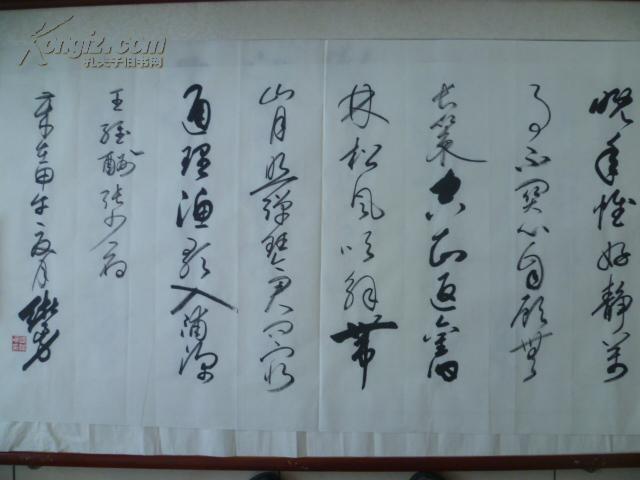 晚年惟好靜萬
事不関心自顾無
长策空知返舊
林松風吹解帶
山月照弹琴君问窮
通理渔歌入浦深
王維酬张少府
甲午夏月
Kongfz.com
孔夫子旧书网